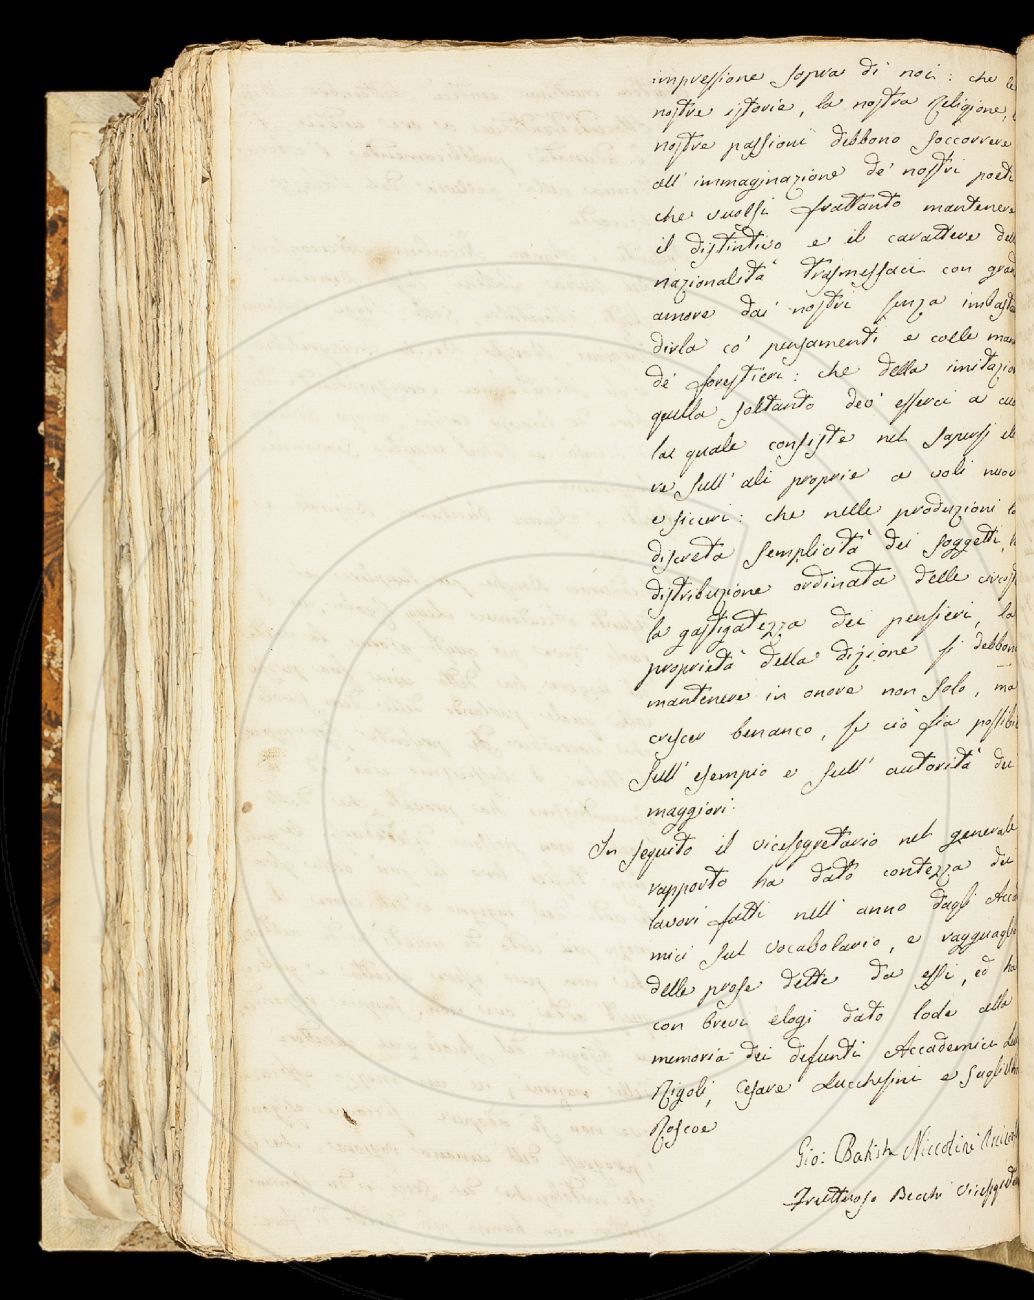 impressione sopra di noi: che le
nostre istorie, la nostra Religione,
nostre passioni debbono soccorrere
all' immaginazione de' nostri poeti
che vuolsi frattanto mantenere
il distintivo e il carattere dell
nazionalità trasmessaci con grand
amore dai nostri senza imbastar
dirla co' pensamenti e colle man
de' forestieri: che della imitazio
quella soltanto dev' esserci a cuo
la quale consiste nel sapersi ele
re sull' ali proprie a voli nuov
e sicuri: che nelle produzioni la
discreta semplicità dei soggetti,
distribuzione ordinata delle circost
la gastigatezza dei pensieri, la
proprietà della dizione si debbon
mantenere in onore non solo, ma
crescer benanco, se ciò fia possibi
sull' esempio e sull' autorità dei
maggiori.
In seguito il vicesegretario nel generale
rapporto ha dato contezza dei
lavori fatti nell' anno dagli Acca
mici sul vocabolario, e ragguagli
delle prose dette da essi, ed ha
con brevi elogi dato lode alla
memoria dei defunti Accademici
Rigoli, Cesare Lucchesini e Guglielm
Roscoe
Gio: Batista Niccolini
Fruttuoso Becchi Vicesegreta